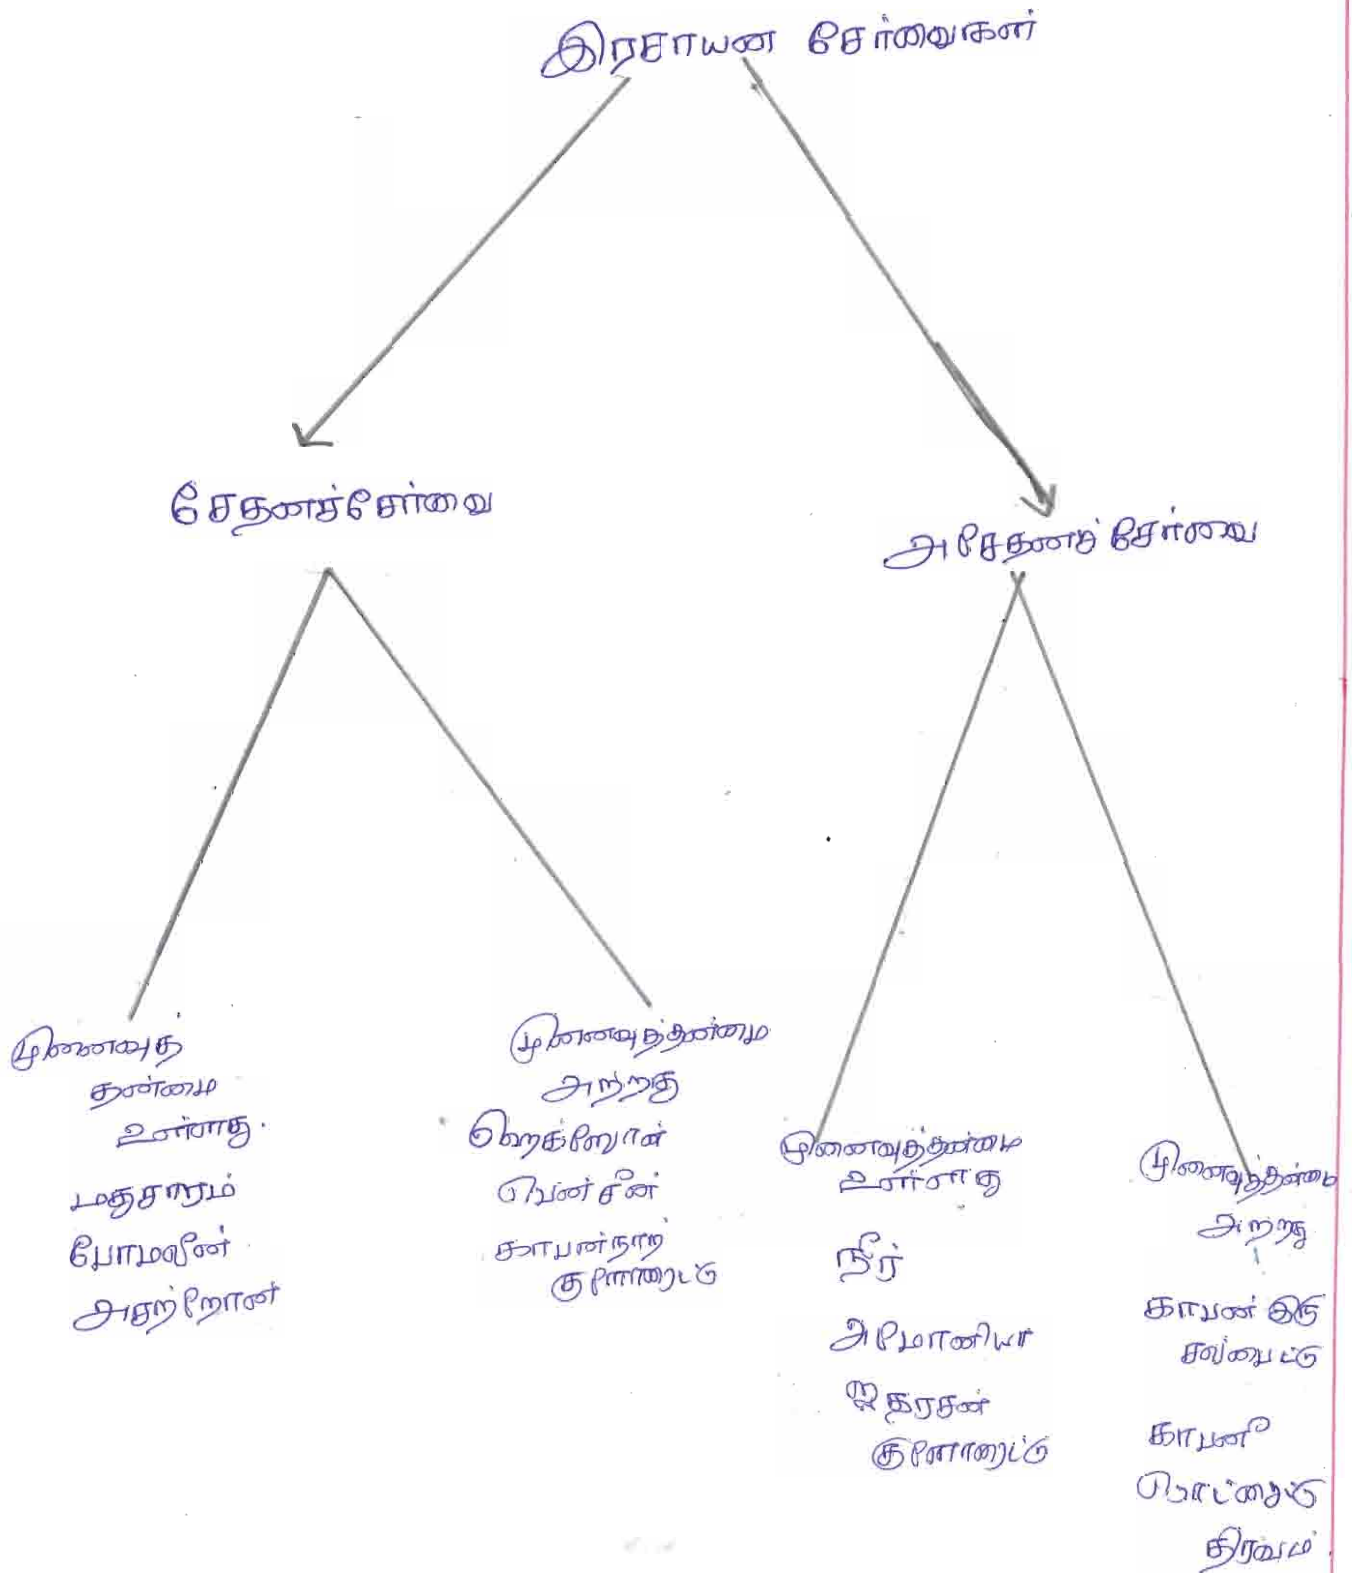 இரசாயன சேர்வைகள்
சேதனச்சேர்வை
அசேதனச் சேர்வை
முனைவுத்
தன்மை
உள்ளது.
மதுசாரம்
போமலீன்
அசற்றோன்
முனைவுத்தன்மை
அற்றது
ஹெக்ஸேன்
பென்சீன்
காபன்நாற்
குளோரைட்டு
முனைவுத்தன்மை
உள்ளது
நீர்
அமோனியா
ஐதரசன்
குளோரைட்டு
முனைவுத்தன்மை
அற்றது
காபன் இரு
சல்பைட்டு
காபனீ
ரொட்சைட்டு
திரவம்.